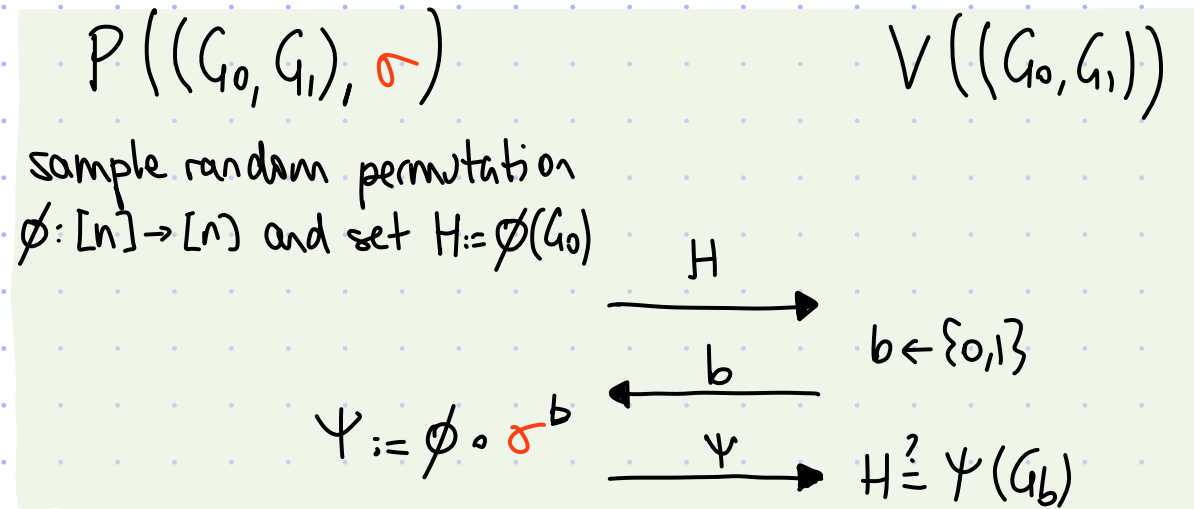 P((G₀, G₁), σ)
V((G₀, G₁))
sample random permutation
ϕ: [n] → [n] and set H := ϕ(G₀)
H
b ← {0,1}
b
Ψ := ϕ ∘ σᵇ
Ψ
H ≟ Ψ(G_b)